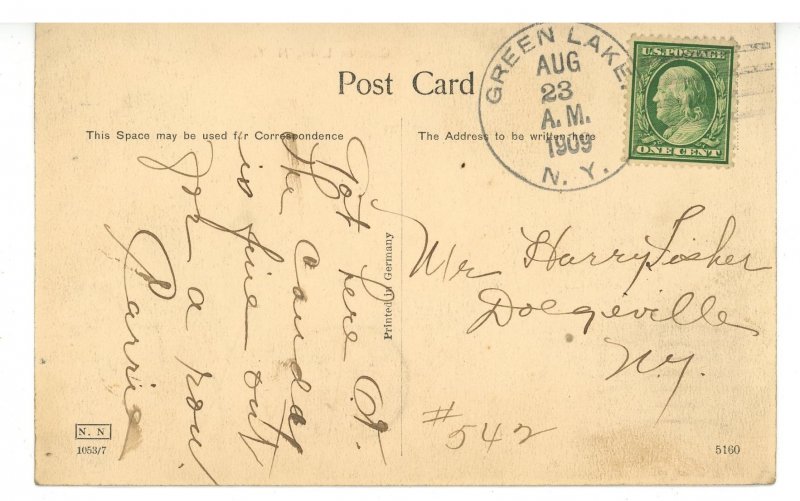 Post Card
This Space may be used for Correspondence
The Address to be written here
GREEN LAKE.
AUG
23
A.M.
1909
N. Y.
U.S. POSTAGE
ONE CENT
Got here O.K.
The Canada
is fine out
for a row
Mr Harry Fisher
Dolgeville
N.Y.
#542
Printed in Germany
N. N
1053/7
5160